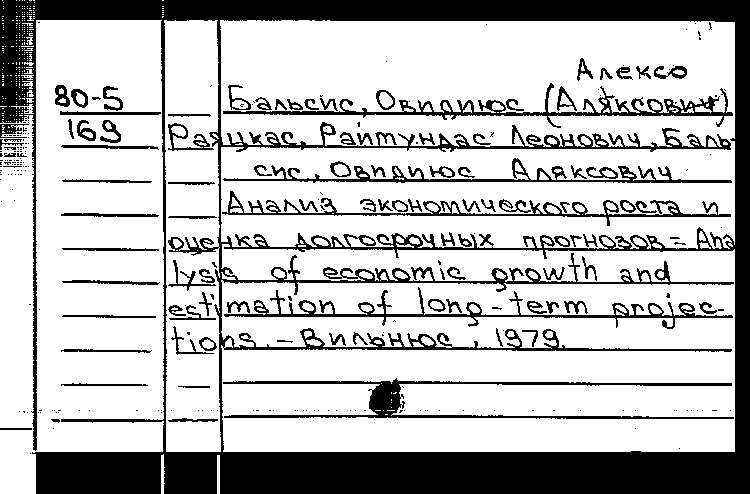 Алексо
80-5 Бальсис, Овидиюс (Аляксович)
169 Раяцкас, Раймундас Леонович, Баль-
сис, Овидиюс Аляксович
Анализ экономического роста и
оценка долгосрочных прогнозов = Ana
lysis of economic growth and
estimation of long-term projec-
tions. - Вильнюс, 1979.